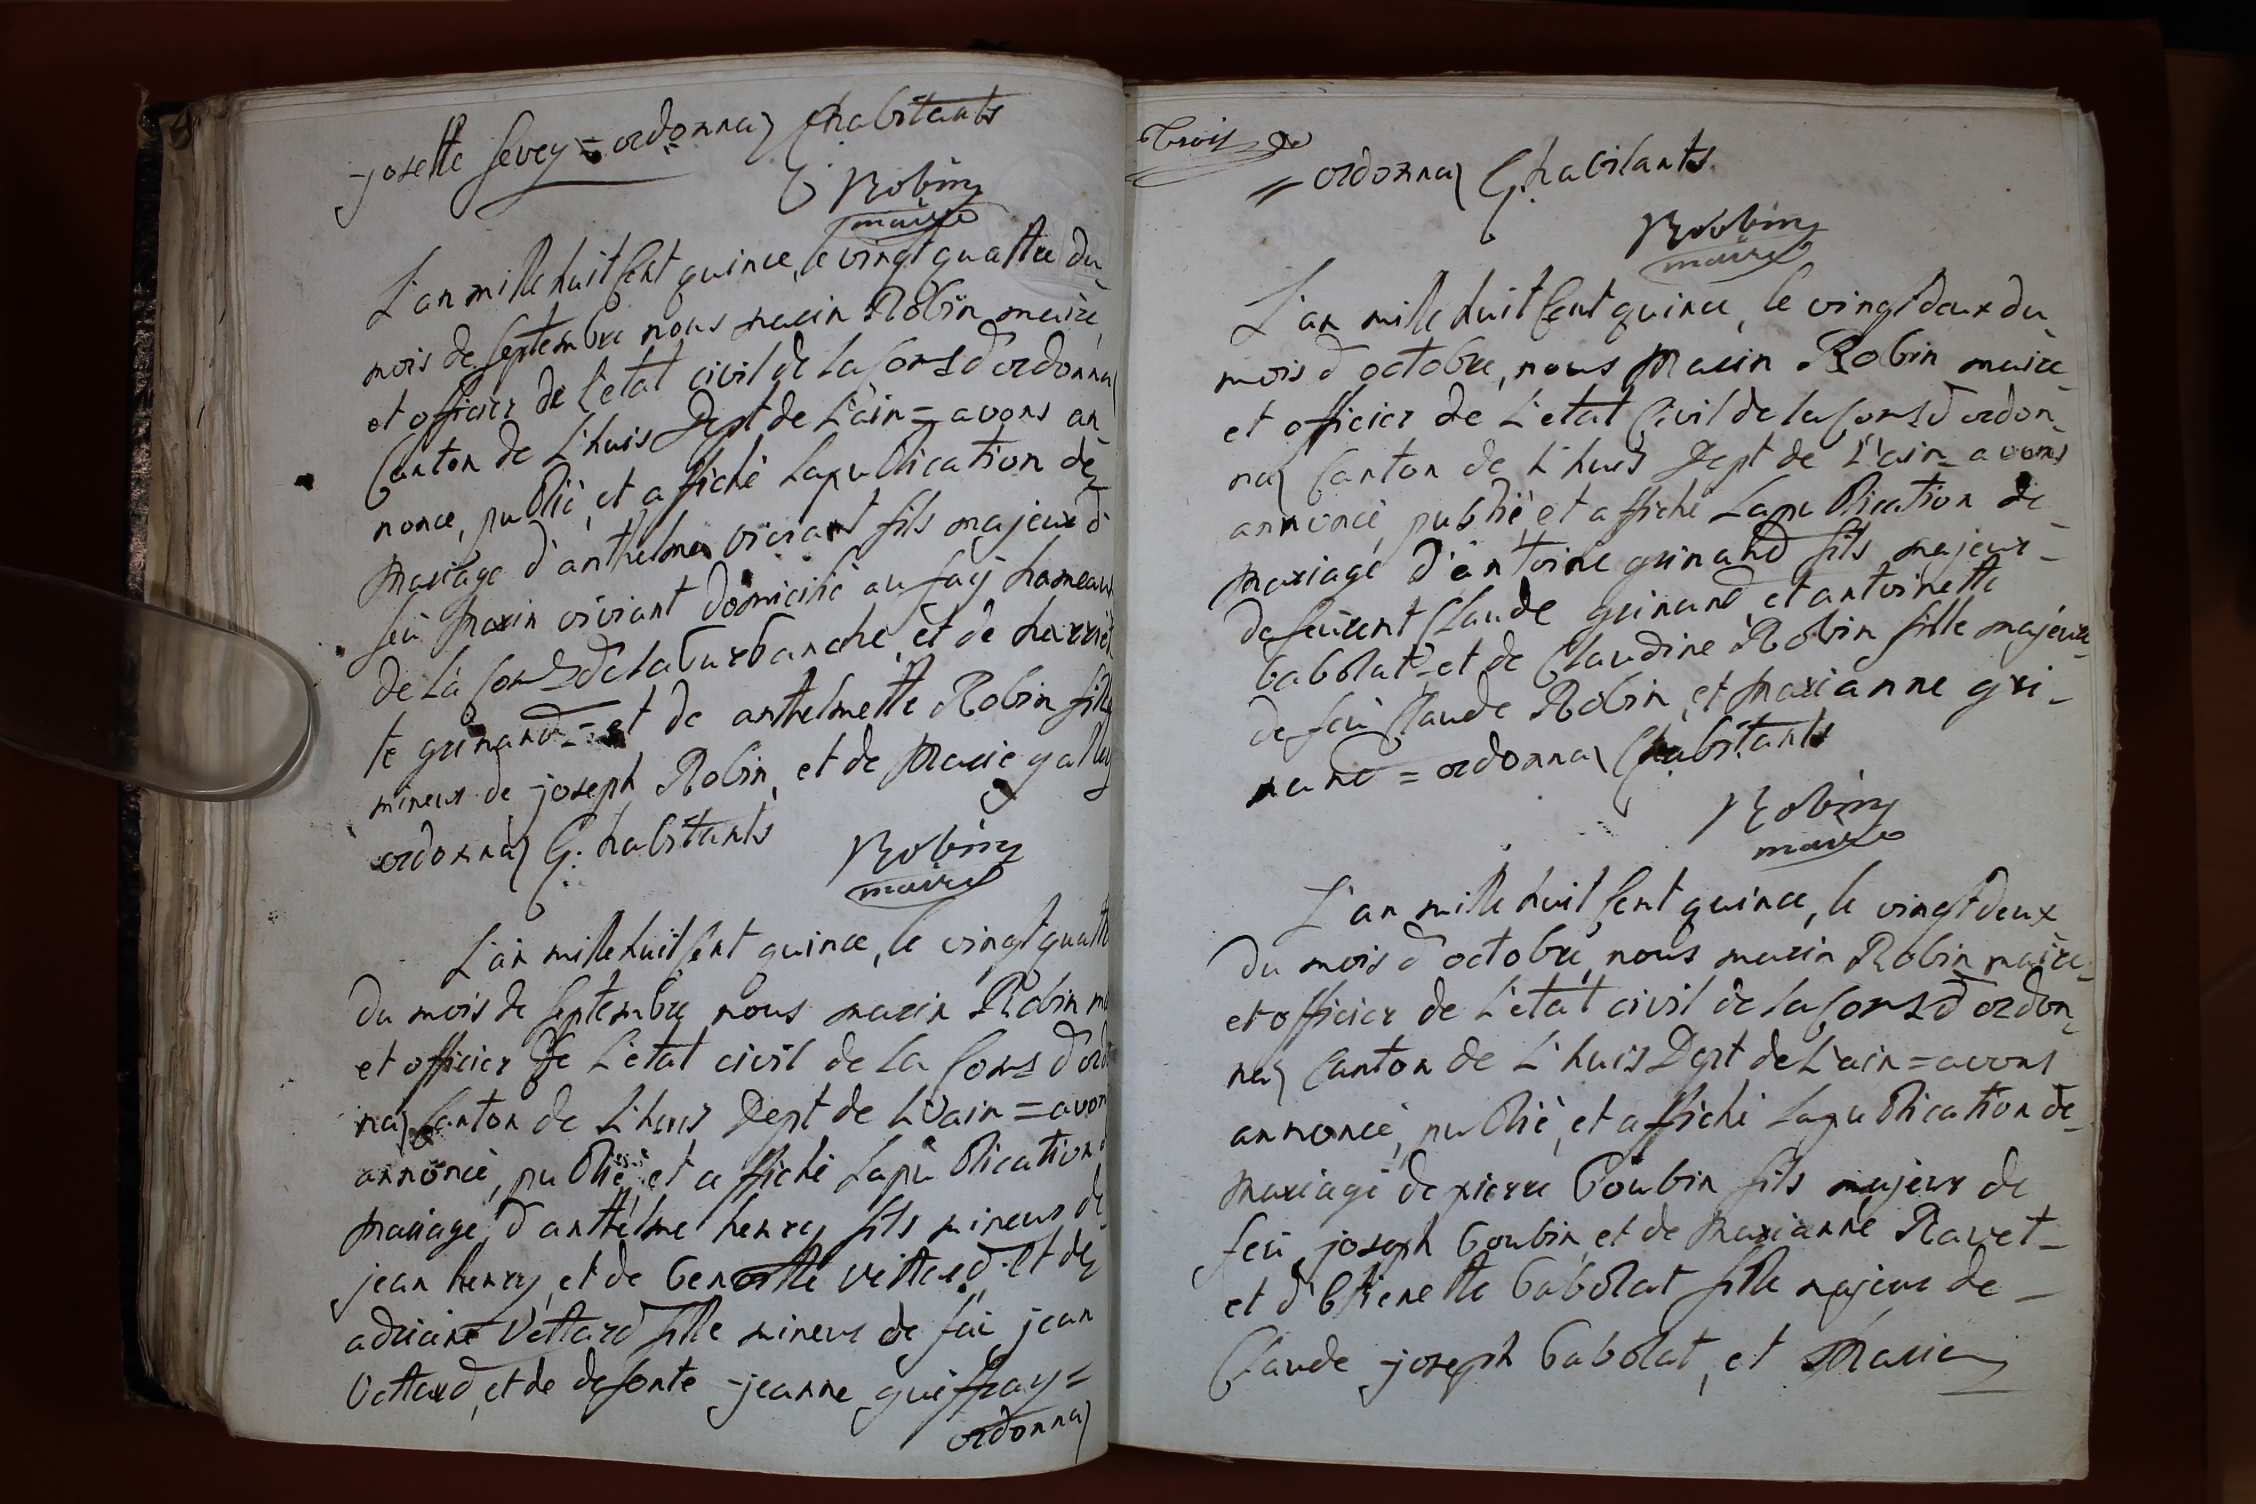 josette sevey = ordonnaz G. habitants
Robin
maire
L'an mille huit cent quince, le vingt quattre du
mois de septembre nous marin Robin maire,
et officier de l'etat civil de la Com.e d'ordonnaz
Canton de L'huis Dept de L'ain = avons an
noncé, publié, et affiché la publication de
Mariage d'anthelme viviant fils majeur d
feu Marin viviant domicilié au fay hameau
de la Com.e de la burbanche, et de
te grinand = et de anthelmette Robin fille
mineur de joseph Robin, et de Marie gallay
ordonnaz G. habitants
Robin
maire
L'an mille huit cent quince, le vingt quattre
du mois de septembre nous marin Robin ma
et officier de L'etat civil de la Com.e d'ordo
naz Canton de L'huis Dept de L'ain = avons
annoncé, publié, et affiché la publication d
Mariage, d'anthelme henry fils mineur de
jean henry, et de benoitte vettard. et de
adriane Vettard fille mineur de feu jean
Vettard, et de defonte jeanne guiffray =
ordonnaz
Trois
= ordonnaz G. habitants.
Robin
maire
L'an mille huit cent quince, le vingt deux du
mois d'octobre, nous Marin Robin maire
et officier de L'etat Civil de la Com.e d'ordon
naz Canton de L'huis Dept de L'ain = avons
annoncé, publié, et affiché la publication de
Mariage d'antoine grinand fils majeur
de feurent Claude grinand, et antoinette
babolat = et de Claudine Robin fille majeure
de feu Claude Robin, et Marianne gri
nand = ordonnaz G. habitants
Robin
maire
L'an mille huit cent quince, le vingt deux
du mois d'octobre, nous marin Robin maire
et officier de L'etat civil de la Com.e d'ordon
naz Canton de L'huis Dept de L'ain = avons
annoncé, publié, et affiché la publication de
Mariage de pierre Goubin fils majeur de
feu joseph Goubin, et de Marianne Ravet
et d'Etienette babolat fille majeur de
Claude joseph babolat, et Marie